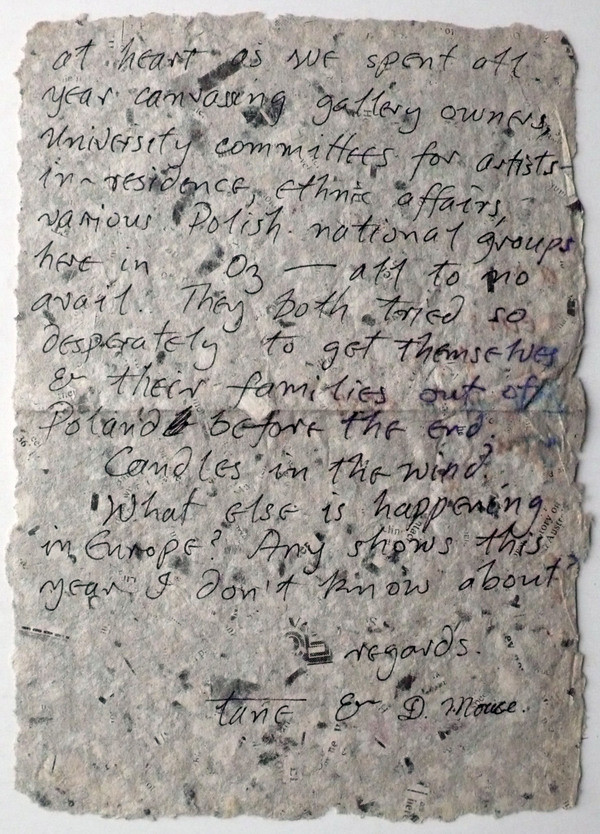 at heart as we spent all
year canvassing gallery owners,
University committees for artists-
in-residence, ethnic affairs,
various Polish national groups
here in Oz — all to no
avail. They both tried so
desperately to get themselves
& their families out of
Poland before the end.
Candles in the wind?
What else is happening
in Europe? Any shows this
year I don't know about?
regards.
tane & D. Mouse.